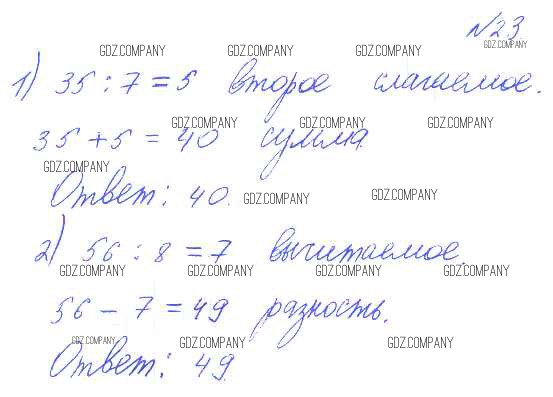 №23
GDZ.COMPANY GDZ.COMPANY GDZ.COMPANY GDZ.COMPANY
1) 35 : 7 = 5 второе слагаемое.
GDZ.COMPANY GDZ.COMPANY GDZ.COMPANY
35 + 5 = 40 сумма.
GDZ.COMPANY
Ответ: 40.
GDZ.COMPANY GDZ.COMPANY
2) 56 : 8 = 7 вычитаемое.
GDZ.COMPANY GDZ.COMPANY GDZ.COMPANY GDZ.COMPANY
56 - 7 = 49 разность.
GDZ.COMPANY GDZ.COMPANY GDZ.COMPANY
Ответ: 49.